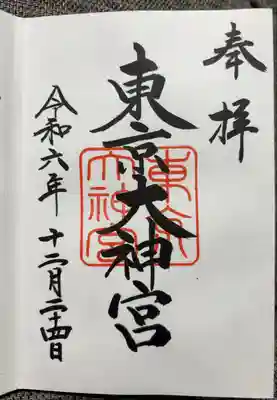 奉拝
東京大神宮
東京大神宮
令和六年 十二月二十四日